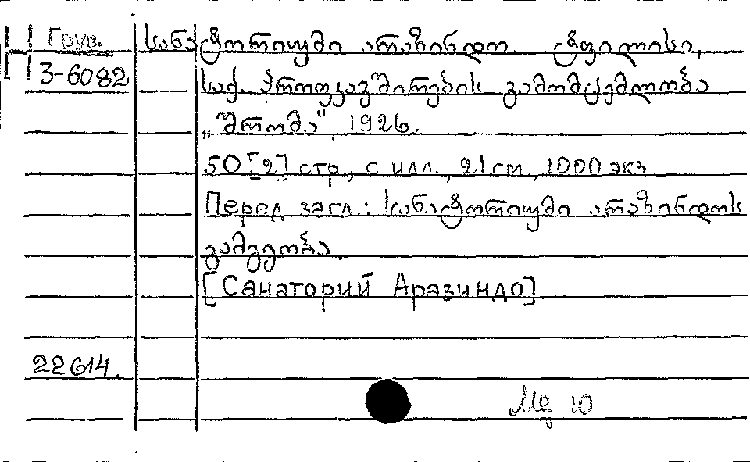 Груз. სანატორიუმი არაზინდო ტფილისი,
3-6082 საქ. პროფკავშირების გამომცემლობა
„შრომა", 1926.
50 [2] стр., с илл., 21 см, 1000 экз
Перед загл.: სანატორიუმი არაზინდოს
გამგეობა.
[Санаторий Аразиндо]
22614.
Мф 10